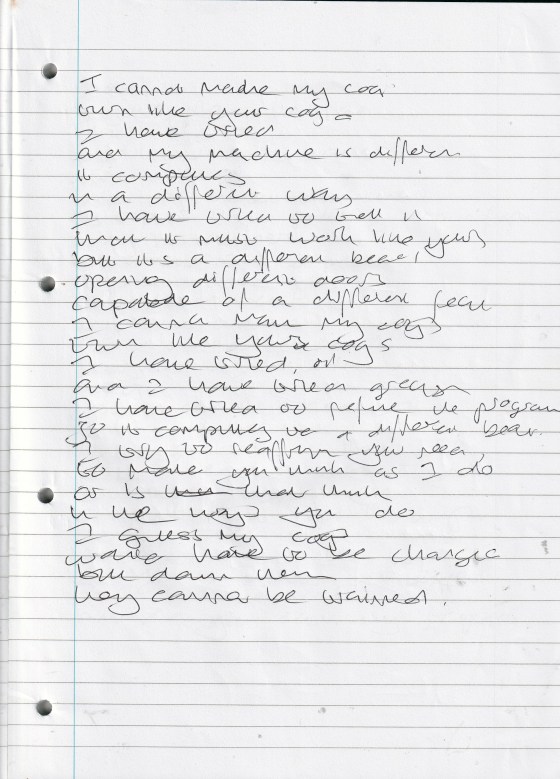 I cannot make my cogs
turn like your cogs
I have tried
and my machine is different
it computes
in a different way
I have tried to tell it
that it must work like yours
but it's a different beast,
opening different doors
capable of a different
I cannot make my cogs
turn like your cogs
I have tried, oil
and I have tried grease
I have tried to refine the program
so it computes to a different beat
I try to you
to make you think as I do
or is that think
in the ways you do
I guess my cogs
would have to be changed
but damn them
they cannot be trained.